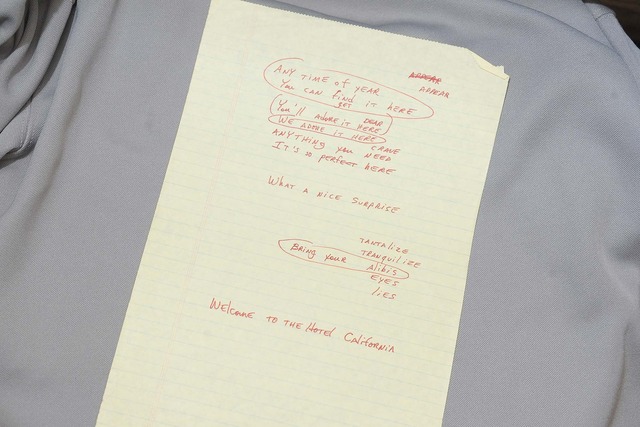 APPEAR
ANY TIME of YEAR APPEAR
You can find it HERE
GET
You'll ADORE it HERE DEAR
WE ADORE IT HERE
ANYTHING you NEED CRAVE
IT'S so PERFECT HERE
WHAT A NICE SURPRISE
TANTALIZE
TRANQUILIZE
BRING YOUR Alibis
EYES
lies
Welcome TO THE HOTEL CALIFORNIA